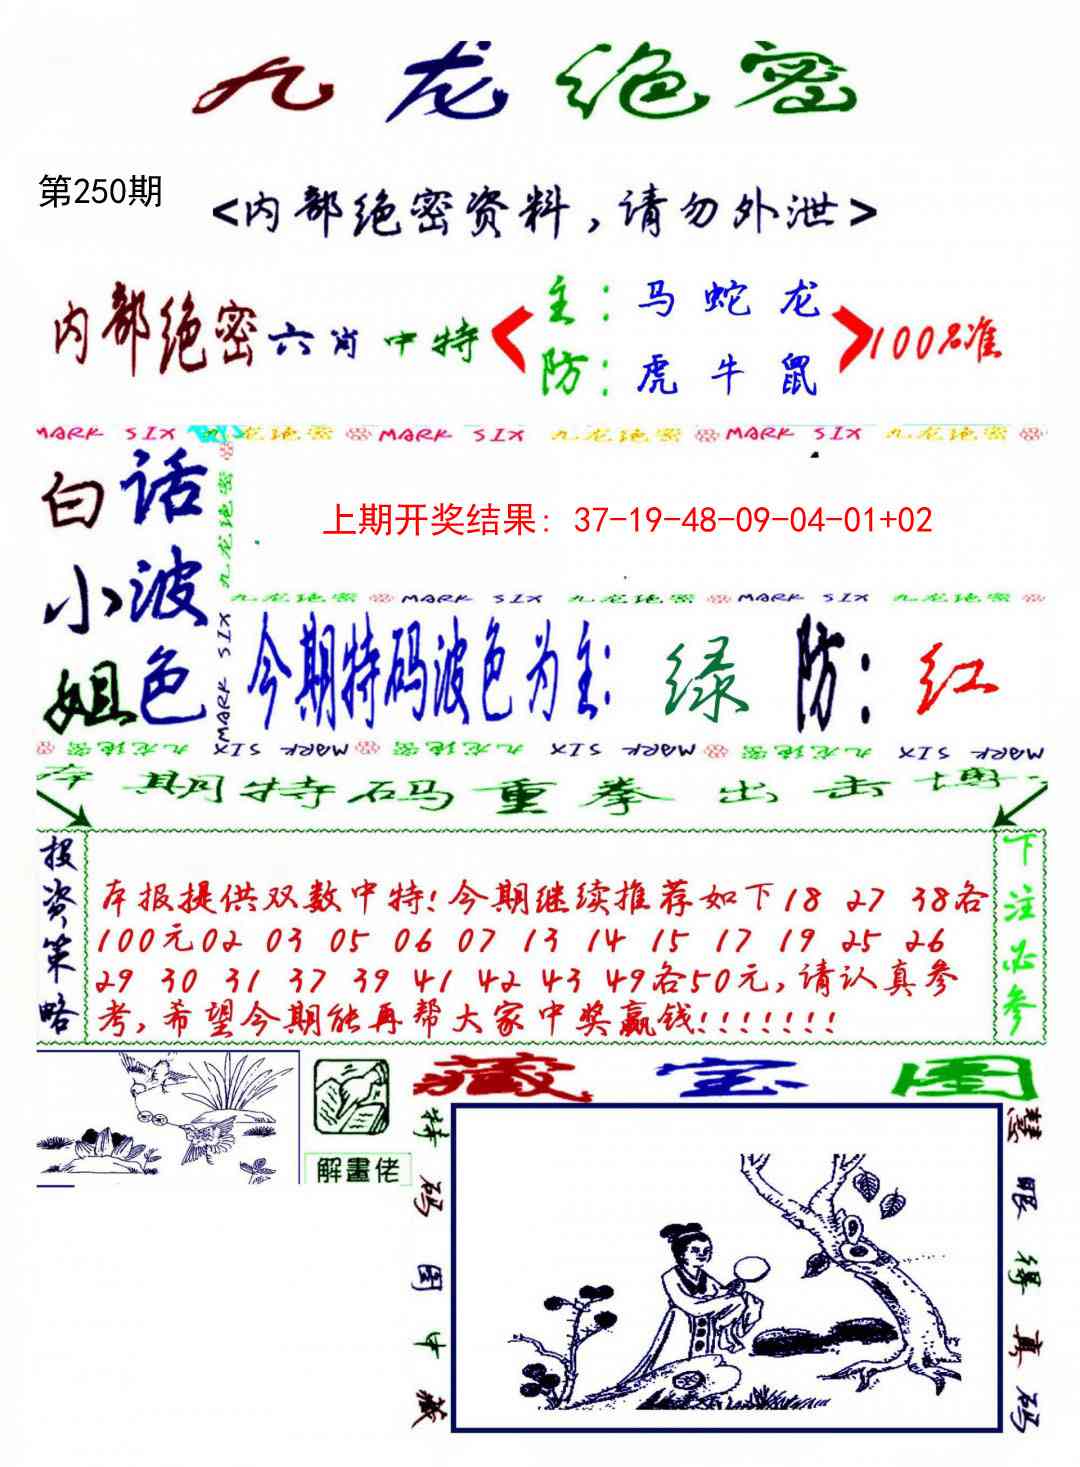 九龙绝密
第250期
<内部绝密资料,请勿外泄>
内部绝密六肖中特
主:马 蛇 龙
防:虎 牛 鼠
100%准
MARK SIX 九龙绝密 MARK SIX 九龙绝密 MARK SIX 九龙绝密
白话
小波
姐色
九龙绝密
MARK SIX
上期开奖结果: 37-19-48-09-04-01+02
九龙绝密 MARK SIX 九龙绝密 MARK SIX 九龙绝密
今期特码波色为主:绿 防:红
九龙绝密 MARK SIX 九龙绝密 MARK SIX 九龙绝密 MARK SIX
本期特码重拳出击博
投资策略
本报提供双数中特!今期继续推荐如下18 27 38各
100元02 03 05 06 07 13 14 15 17 19 25 26
29 30 31 37 39 41 42 43 49各50元,请认真参
考,希望今期能再帮大家中奖赢钱!!!!!!!
下注必参
解畫佬
藏宝图
特码图中藏
慧眼得真码